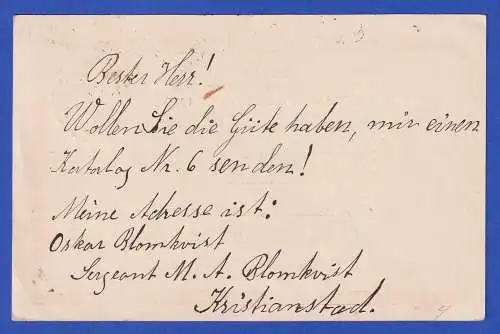 Bester Herr!
Wollen Sie die Güte haben, mir einen
Katalog Nr. 6 senden!
Meine Adresse ist:
Oskar Blomkvist
Sergeant M. A. Blomkvist
Kristianstad.